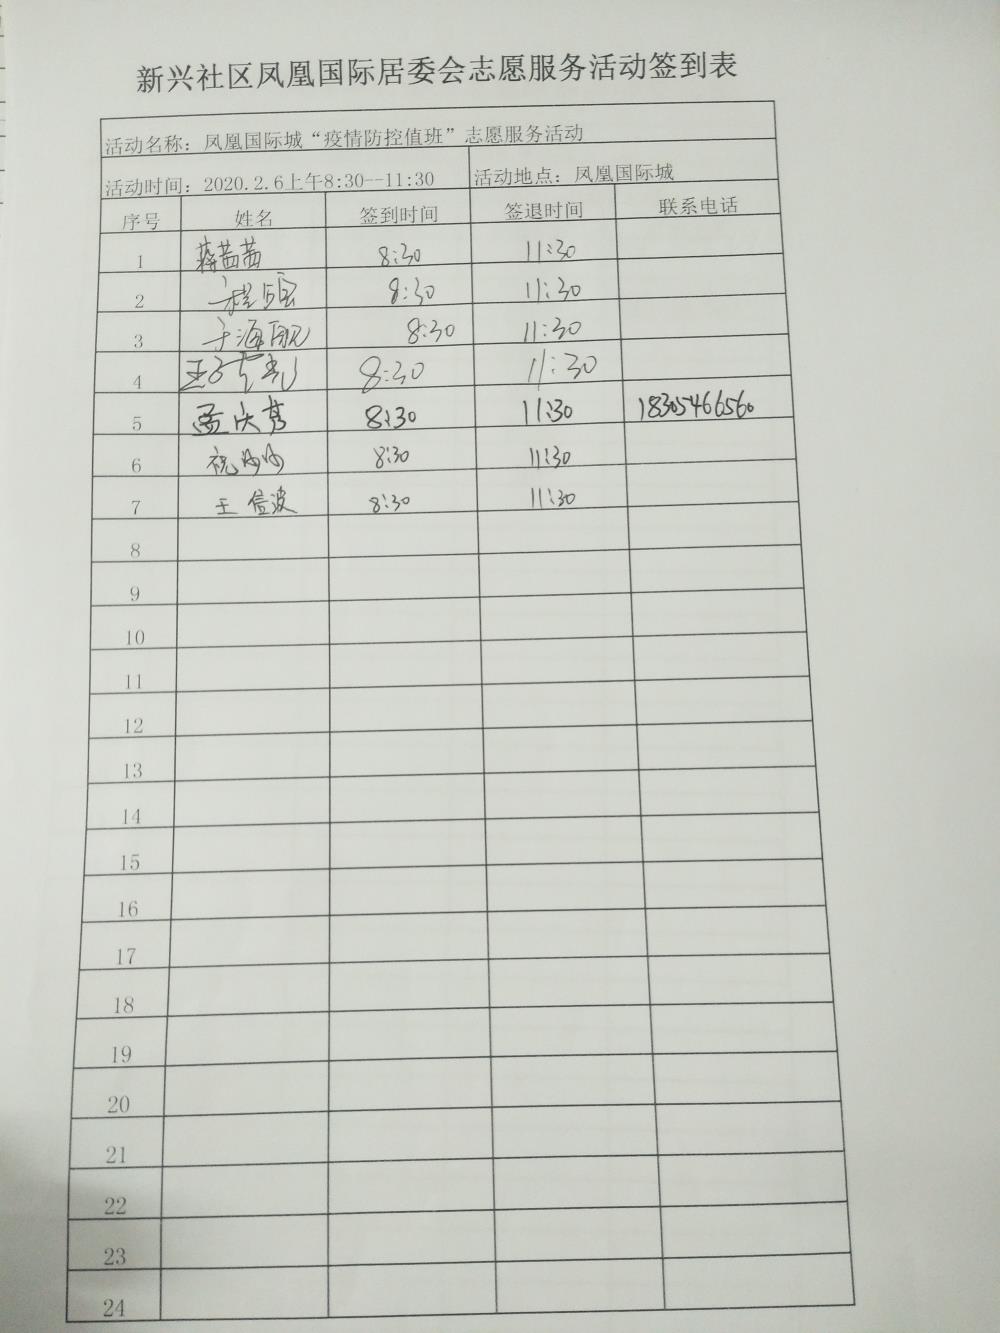 新兴社区凤凰国际居委会志愿服务活动签到表
活动名称：凤凰国际城“疫情防控值班”志愿服务活动
活动时间：2020.2.6上午8:30--11:30 活动地点：凤凰国际城
序号 姓名 签到时间 签退时间 联系电话
1 蒋茜茜 8:30 11:30
2 8:30 11:30
3 于海 8:30 11:30
4 王子 8:30 11:30
5 孟庆 8:30 11:30 18305466560
6 祝 8:30 11:30
7 王信波 8:30 11:30
8
9
10
11
12
13
14
15
16
17
18
19
20
21
22
23
24